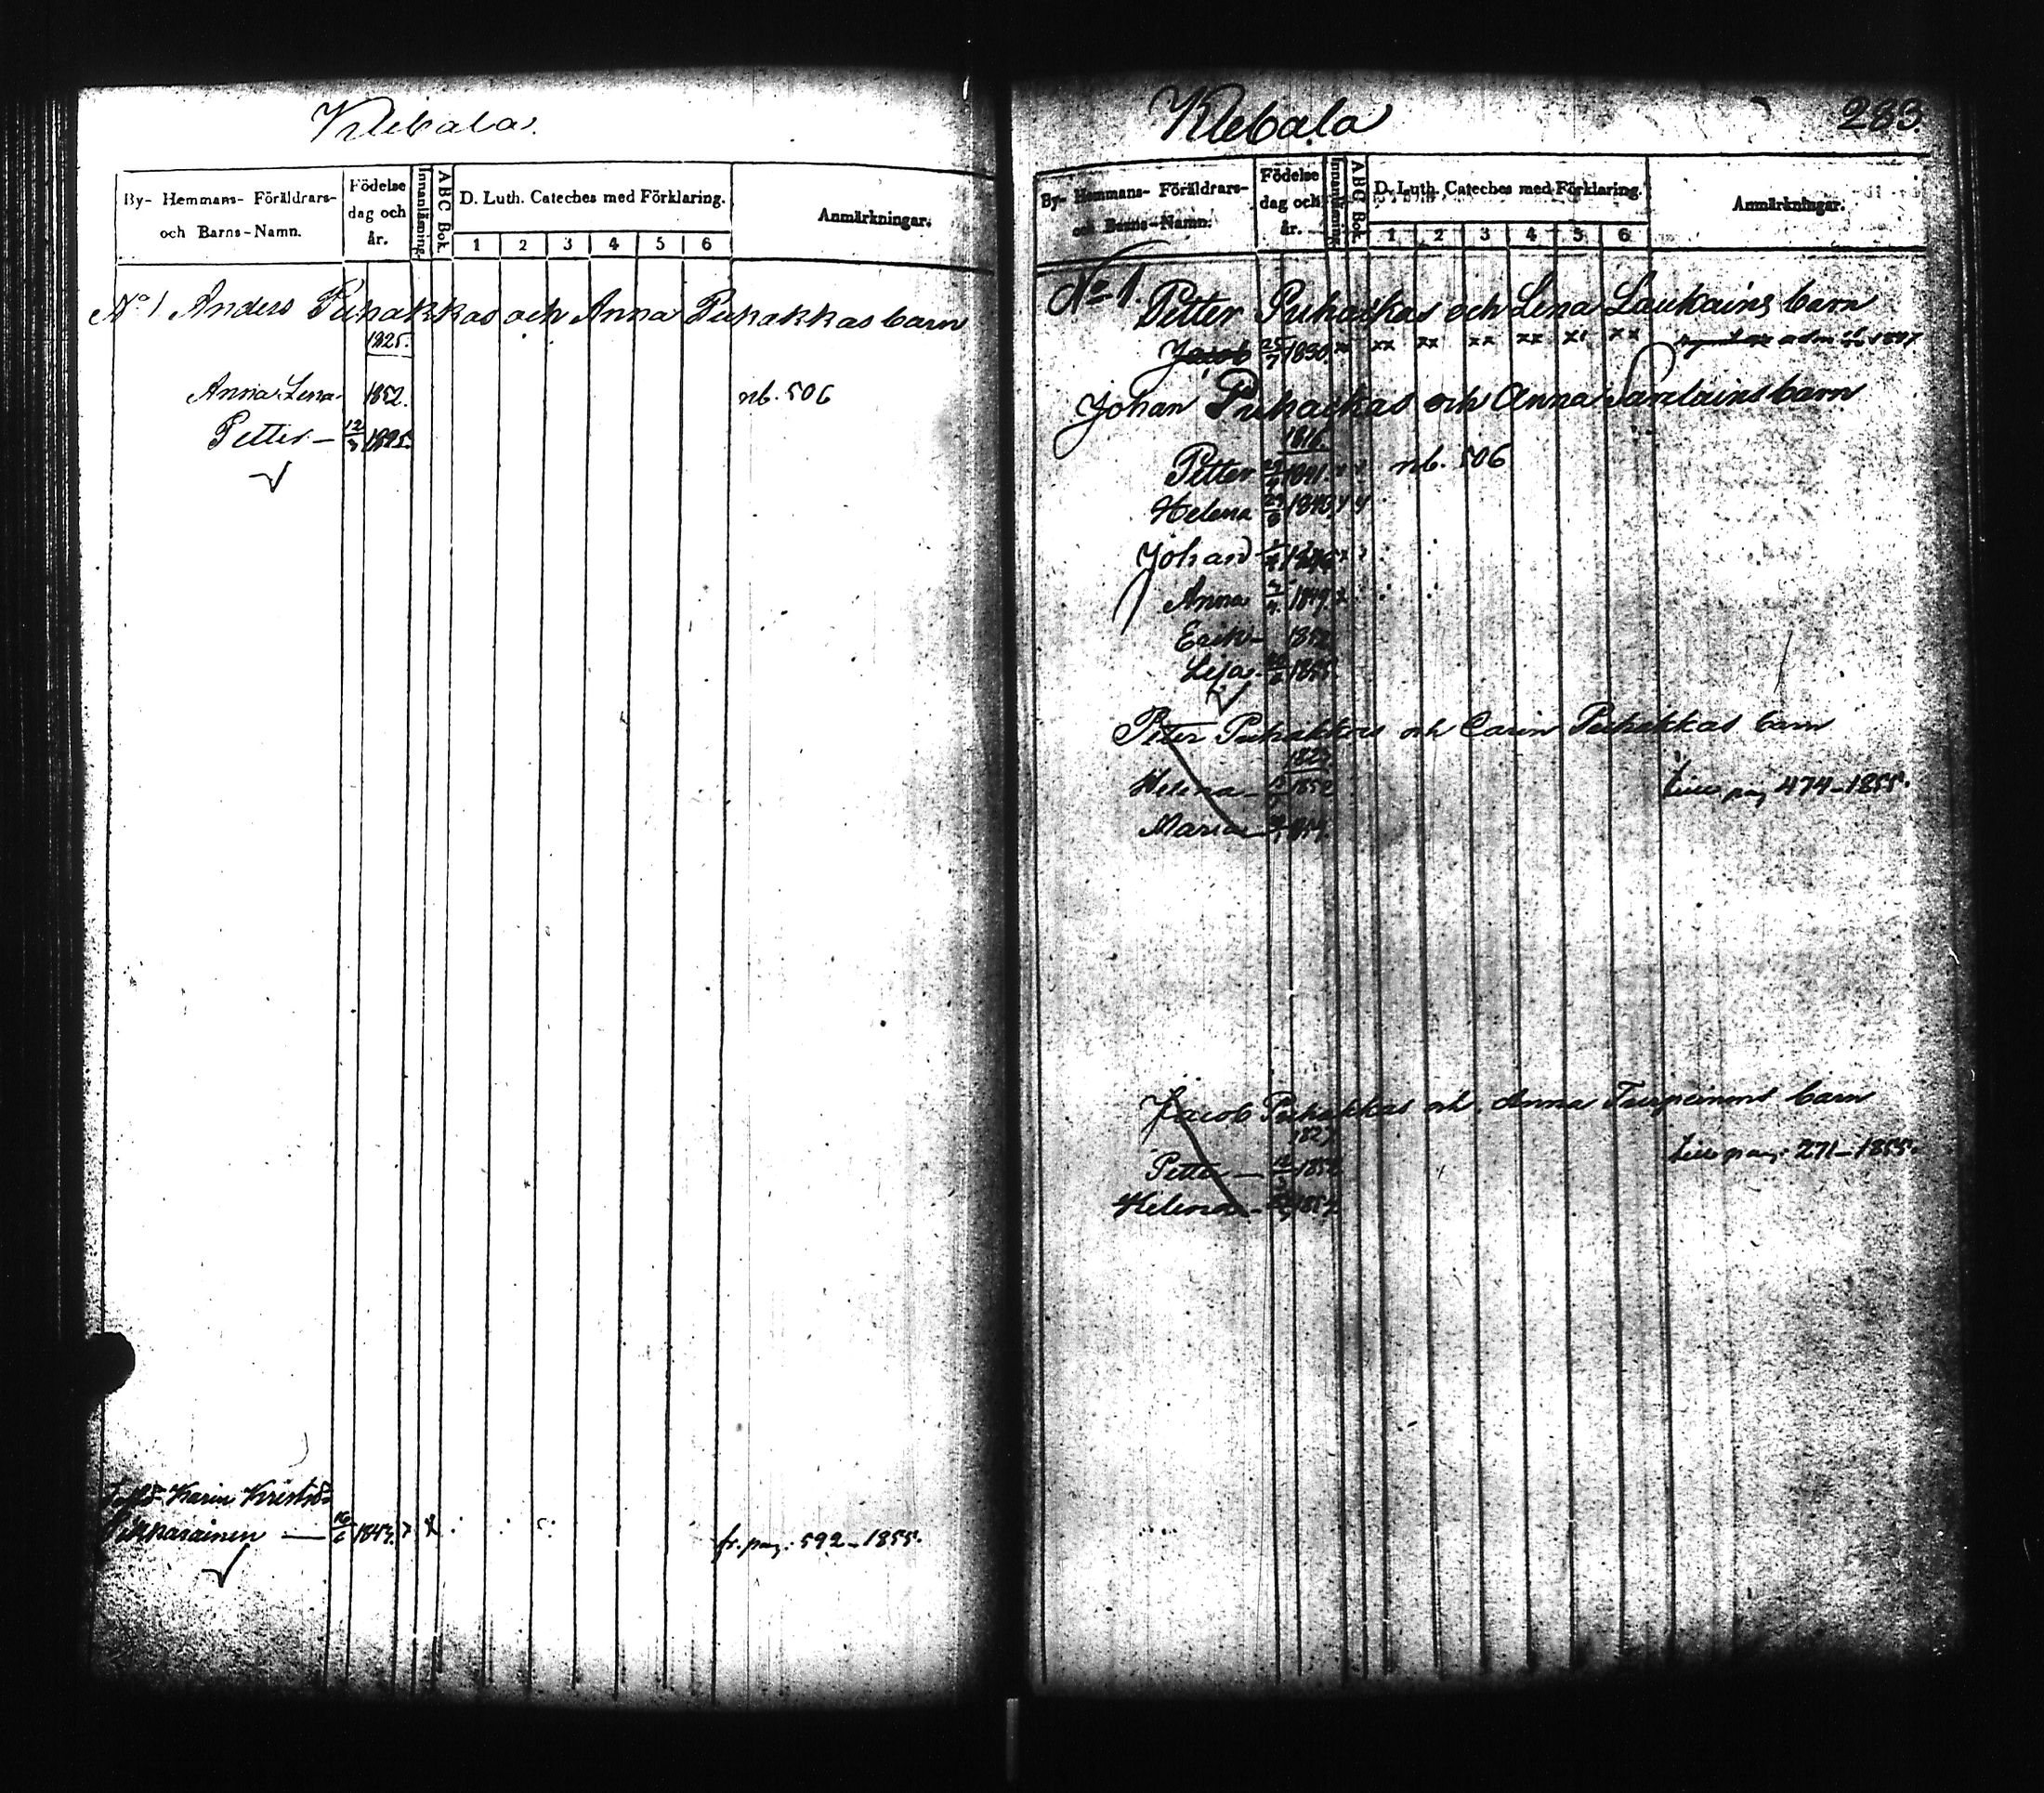 Klebala.
By- Hemmans- Föräldrars- och Barns-Namn.
Födelse dag och år.
Innanläsning.
A B C Bok.
D. Luth. Cateches med Förklaring.
1 2 3 4 5 6
Anmärkningar.
No 1 Anders Puhakkas och Anna Puhakkas barn
1825.
Anna Lena 1852. nb. 506
Petter — 12/3 1855.
Karin Kristid:r
— 16/6 1843. x
fr. pag. 592–1855.
Klebala
283.
By- Hemmans- Föräldrars- och Barns-Namn.
Födelse dag och år.
Innanläsning.
A B C Bok.
D. Luth. Cateches med Förklaring.
1 2 3 4 5 6
Anmärkningar.
No 1.
Petter Puhackas och Lena Laukains barn
Jacob 25/7 1830 xx xx xx xx xx xx adm 1847
Johan Puhackas och Anna barn
1816.
Petter 1841. nb. 506
Helena
Johan
Anna 1849. x
Erik – 1852
Lisa 1855.
Peter Puhakkas och Carin Puhakkas barn
Helena – 1852 pag 474–1855.
Maria
Jacob Puhakkas och Anna Turpeinens barn
1827
Petter — pag. 271–1855.
Helena –